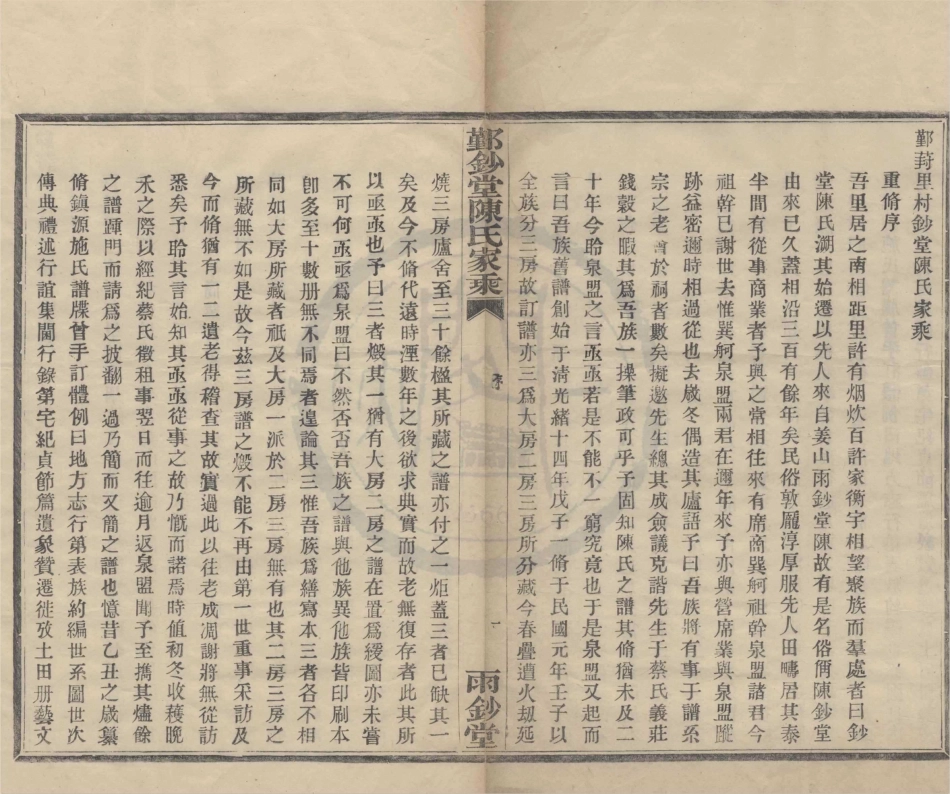 鄞葑里村鈔堂陳氏家乘
重脩序
吾里居之南相距里許有烟炊百許家衡宇相望聚族而羣處者曰鈔
堂陳氏溯其始遷以先人來自姜山雨鈔堂陳故有是名俗偁陳鈔堂
由來已久蓋相沿三百有餘年矣民俗敦龐淳厚服先人田疇居其泰
半間有從事商業者予與之常相往來有席商巽舸祖幹泉盟諸君今
祖幹已謝世去惟巽舸泉盟兩君在邇年來予亦與營席業與泉盟蹤
跡益密邇時相過從也去歲冬偶造其廬語予曰吾族將有事于譜系
宗之老酋於祠者數矣擬邀先生總其成僉議克諧先生于蔡氏義莊
錢穀之暇其爲吾族一操筆政可乎予固知陳氏之譜其脩猶未及二
十年今聆泉盟之言亟亟若是不能不一窮究竟也于是泉盟又起而
言曰吾族舊譜創始于清光緒十四年戊子一脩于民國元年壬子以
全族分三房故訂譜亦三爲大房二房三房所分藏今春疊遭火刼延
鄞鈔堂陳氏家乘
序
一
雨鈔堂
燒三房廬舍至三十餘楹其所藏之譜亦付之一炬蓋三者已缺其一
矣及今不脩代遠時湮數年之後欲求典實而故老無復存者此其所
以亟亟也予曰三者燬其一猶有大房二房之譜在置爲緩圖亦未嘗
不可何亟亟爲泉盟曰不然否否吾族之譜與他族異他族皆印刷本
卽多至十數册無不同焉者遑論其三惟吾族爲繕寫本三者各不相
同如大房所藏者祇及大房一派於二房三房無有也其二房三房之
所藏無不如是故今茲三房譜之燬不能不再由第一世重事采訪及
今而脩猶有一二遺老得稽查其故實過此以往老成凋謝將無從訪
悉矣予聆其言始知其亟亟從事之故乃慨而諾焉時値初冬收穫晚
禾之際以經紀蔡氏徵租事翌日而往逾月返泉盟聞予至擕其燼餘
之譜踵門而請爲之披翻一過乃簡而又簡之譜也憶昔乙丑之歲纂
脩鎭源施氏譜牒曾手訂體例曰地方志行第表族約編世系圖世次
傳典禮述行誼集闔行錄第宅紀貞節篇遺象贊遷徙攷土田册藝文